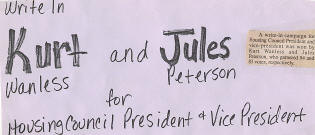 Write In
Kurt and Jules
Wanless Peterson
for
Housing Council President & Vice President
A write-in campaign for
Housing Council President and
vice-president was won by
Kurt Wanless and Jules
Peterson, who garnered 84 and
votes, respectively.